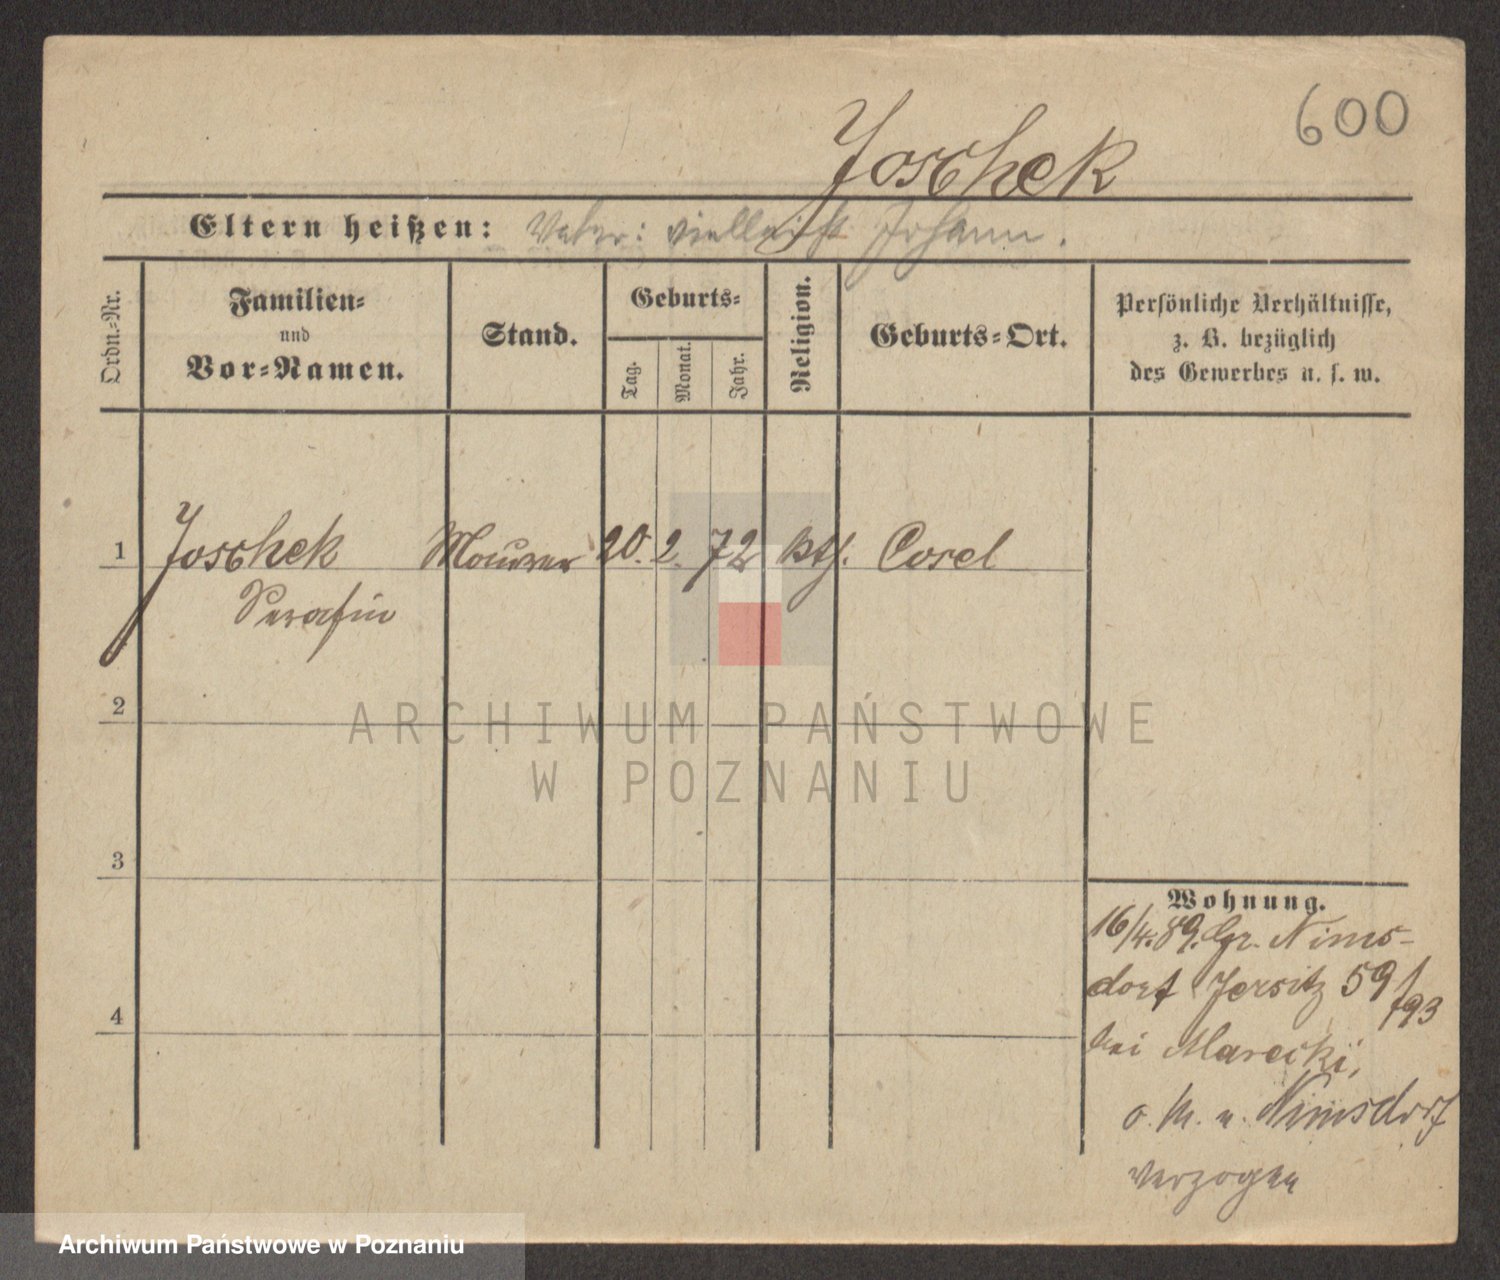 600
Joschek
Eltern heißen: Vater: vielleicht Johann.
Ordn.-Nr.
Familien-
und
Vor-Namen.
Stand.
Geburts-
Tag.
Monat.
Jahr.
Religion.
Geburts-Ort.
Persönliche Verhältnisse,
z. B. bezüglich
des Gewerbes u. s. w.
1 Joschek Maurer 20. 2. 72 kth. Cosel
Serafin
2
3
4
ARCHIWUM PAŃSTWOWE
W POZNANIU
Wohnung.
16/4. 89. Gr. Nims-
dorf Jersitz 59
/93
bei Marecki,
o. M. n. Nimsdorf
verzogen
Archiwum Państwowe w Poznaniu